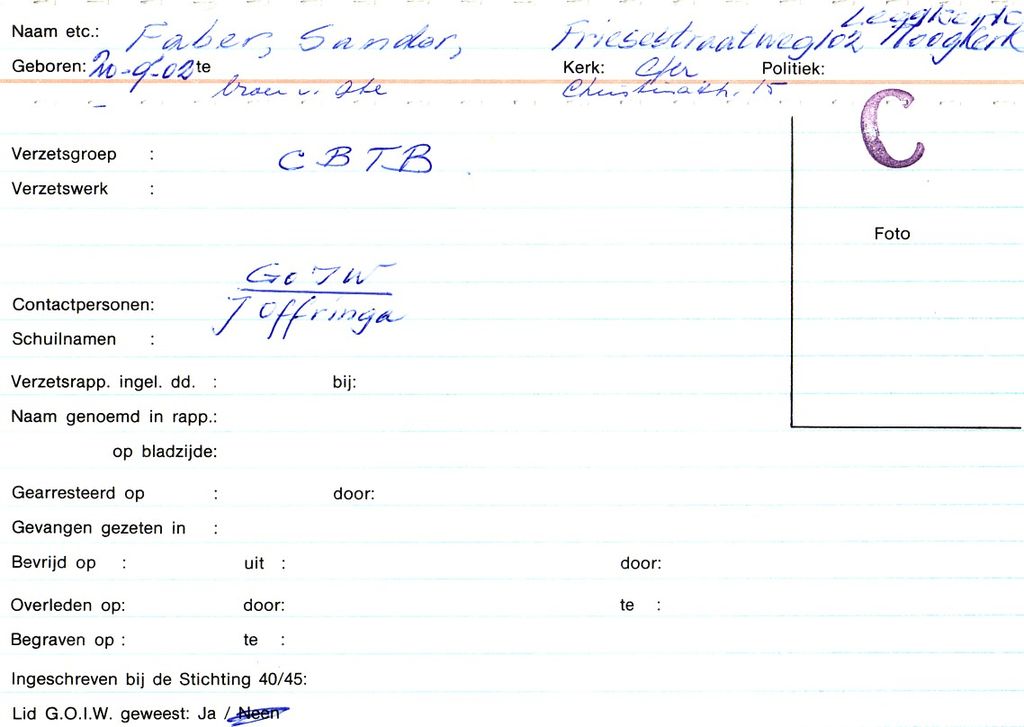 Leegkerk
Naam etc.: Faber, Sandor, Friesestraatweg 102 Hoogkerk
Geboren: 20-9-02 te Kerk: Ger Politiek:
broer v. Abe Christinastr. 15
C
Verzetsgroep : CBTB
Verzetswerk :
Foto
GOIW
Contactpersonen: J Offringa
Schuilnamen :
Verzetsrapp. ingel. dd. : bij:
Naam genoemd in rapp.:
op bladzijde:
Gearresteerd op : door:
Gevangen gezeten in :
Bevrijd op : uit : door:
Overleden op: door: te :
Begraven op : te :
Ingeschreven bij de Stichting 40/45:
Lid G.O.I.W. geweest: Ja / Neen